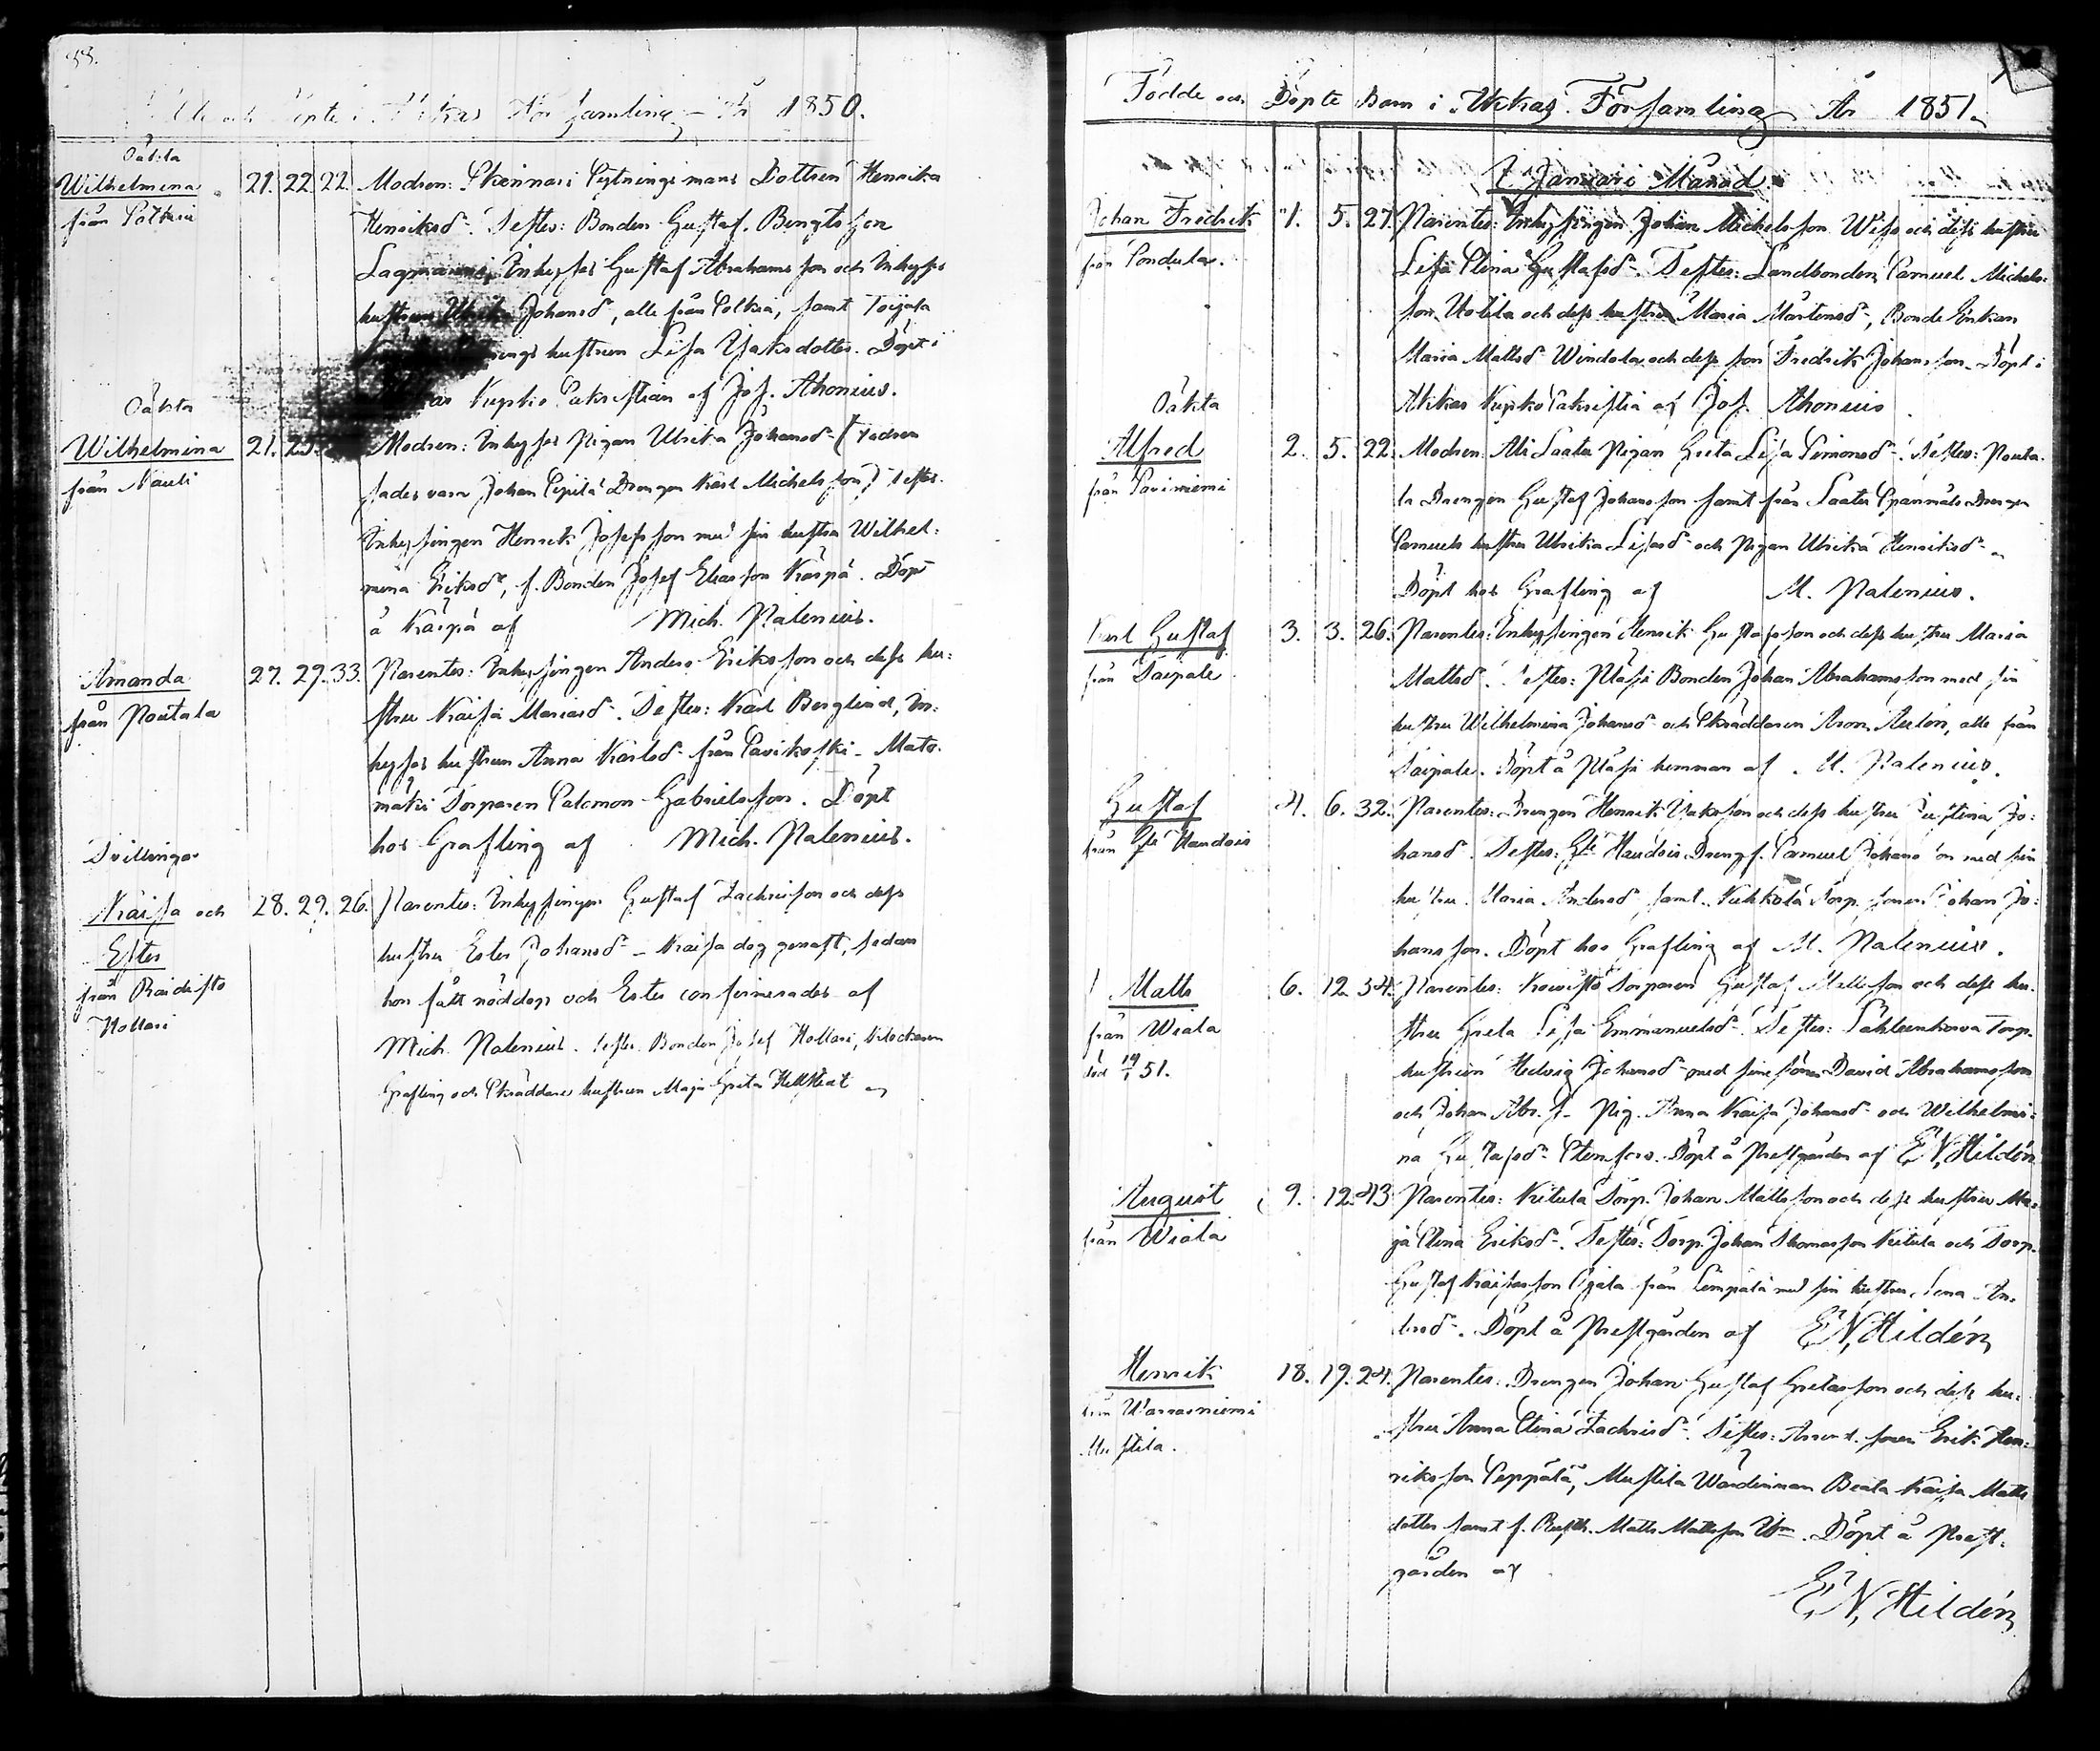 och Döpte i Akkas Församling År 1850.
Oäkta
Wilhelmina
från Sotkia
21. 22. 22. Modren: Skinnari Sytningsmans Dottren Henrika
Henriksd. Testes: Bonden Gustaf Bengtsson
Lagmanni, Inhyses Gustaf Abrahamsson och Inhyses
hustrun Ulrika Johansd, alle från Sotkia, samt Toijala
hustrun Lisa Jaksdotter. Döpt i
Kyrko Sakristian af Jos. Ahonius.
Oäkta
Wilhelmina
från Nauli
21. 25. Modren: Inhyses pigan Ulrika Johansd (Fadren
sades vara Johan Drengen Karl Michelsson) Testes:
Inhysingen Henrik Josefsson med sin hustru Wilhel-
mina Eriksd, f. Bonden Josef Eliasson Kärpä. Döpt
å Kärpä af Mich. Palenius.
Amanda
från Poutala
27. 29. 33. Parentes: Inhysingen Anders Eriksson och dess hu-
stru Kaisa Mariasd. Testes: Karl Berglind, In-
hyses hustrun Anna Karlsd från Savikoski Mats-
mäki Torparen Salomon Gabrielsson. Döpt
hos Grafling af Mich. Palenius.
Tvillingar
Kaisa och
Ester
från
Hollari
28. 29. 26. Parentes: Inhysingen Gustaf Zachrisson och dess
hustru Ester Johansd – Kaisa dog genast, sedan
hon fått nöddop och Ester confirmerades af
Mich. Palenius. Testes: Bonden Josef Hollari, Klockaren
Grafling och Skräddare hustrun Maja Greta Hellstedt
Födde och Döpte Barn i Akkas Församling År 1851.
Januari Månad
Johan Fredrik
från Sondula.
1. 5. 27. Parentes: Inhysingen Johan Michelsson och dess hustru
Lisa Stina Gustafsd. Testes: Landbonden Samuel Michels-
son Uotila och dess hustru Maria Mårtensd, Bonde Enkan
Maria Mattsd Windala och dess son Fredrik Johansson. Döpt i
Akkas Kyrko Sakristia af Jos. Ahonius
Oäkta
Alfred
från Saviniemi
2. 5. 22. Modren: Ali Saatu Pigan Greta Lisa Simonsd. Testes: Pouta-
la Drengen Gustaf Johansson samt från Saatu
Samuels hustru Ulrika och Pigan Ulrika Henriksd
Döpt hos Grafling af M. Palenius.
Karl Gustaf
från Saipale
3. 3. 26. Parentes: Inhysingen Henrik Gustafsson och dess hustru Maria
Mattsd. Testes: Bonden Johan Abrahamsson med sin
hustru Wilhelmina Johansd och Skräddaren Aron, alle från
Saipale. Döpt å hemman af M. Palenius.
Gustaf
från Haudois
4. 6. 32. Parentes: Drengen Henrik Jaksson och dess hustru Justina Jo-
hansd. Testes: Haudois Dreng Samuel Johansson med sin
hustru Maria Andersd samt Torp. sonen Johan Jo-
hansson. Döpt hos Grafling af M. Palenius.
Matts
från Wiala
död 19/1 51.
6. 12. 34. Parentes: Torparen Gustaf Mattsson och dess hu-
stru Greta Lisa Emmanuelsd. Testes: Torp-
hustrun Hedwig Johansd med sine söner David Abrahamsson
och Johan Abr. s. Pig. Anna Kaisa Johansd och Wilhelmi-
na Gustafsd. Döpt å Prestgården af E. N. Hildén
August
från Wiala
9. 12. 43. Parentes: Kitula Torp. Johan Mattsson och dess hustru Ma-
ja Stina Eriksd. Testes: Torp. Johan Thomasson Kitula och Torp.
Gustaf från Lempälä med sin hustru Lena An-
dersd. Döpt å Prestgården af E. N. Hildén
Henrik
från Warrasniemi
Mustila.
18. 19. 24. Parentes: Drengen Johan Gustaf Gretasson och dess hu-
stru Anna Stina Zachrisd. Testes: sonen Erik Hen-
riksson Seppälä, Mustila Wärdinnan Beata Kaisa Matts
dotter samt f. Matts Mattsson. Döpt å Prest-
gården af
E. N. Hildén